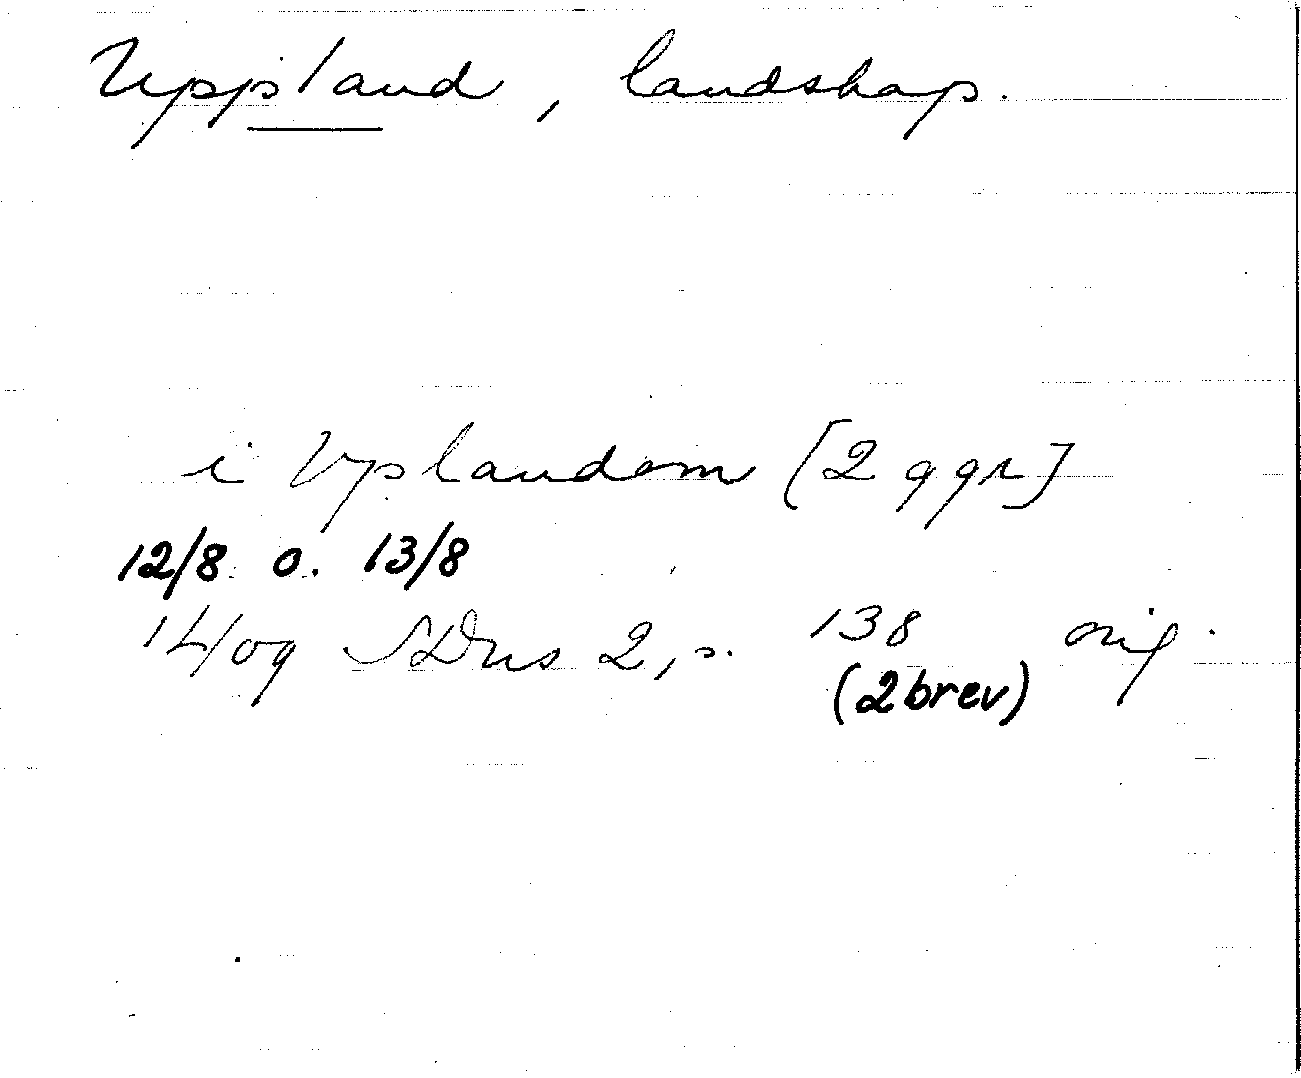 Uppland, landskap.
i Vplandom [2 ggr]
12/8 o. 13/8
1409 SDns 2, s. 138 orig.
(2 brev)